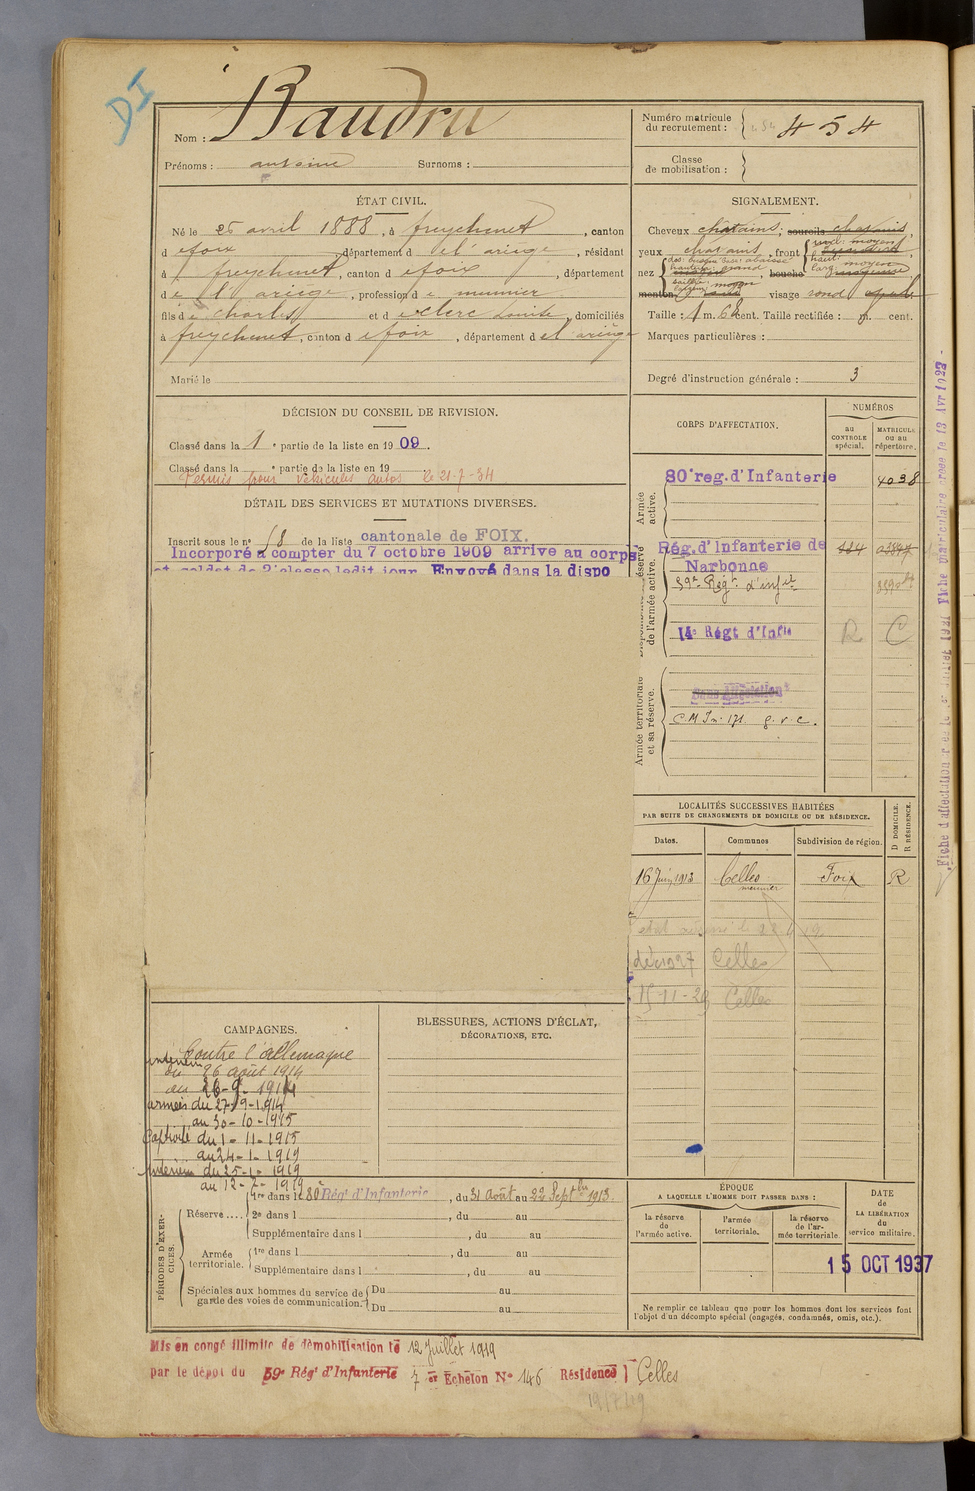 DI
Nom : Baudru
Prénoms : antoine Surnoms :
Numéro matricule du recrutement : 454
Classe de mobilisation :
ÉTAT CIVIL.
Né le 25 avril 1888, à freychenet, canton
d efoix, département d el' ariège, résidant
à freychenet, canton d efoix, département
d e l' ariège, profession d e meunier
fils d e Charles et d eclerc Louise, domiciliés
à freychenet, canton d efoix, département d el ariège
Marié le
SIGNALEMENT.
Cheveux chatains; sourcils chatains,
yeux chatains, front incl: moyen haut:
nez dos: busqué base: abaissée hauteur: grand saillie: moyen largeur: moyen, bouche larg: moyen moyenne,
menton, visage rond
Taille : 1 m. 64 cent. Taille rectifiée : m. cent.
Marques particulières :
Degré d'instruction générale : 3
DÉCISION DU CONSEIL DE REVISION.
Classé dans la 1e partie de la liste en 1909.
Classé dans la e partie de la liste en 19
Permis pour véhicules autos le 21-7-34
DÉTAIL DES SERVICES ET MUTATIONS DIVERSES.
Inscrit sous le n° 58 de la liste cantonale de FOIX.
Incorporé à compter du 7 octobre 1909 arrivé au corps
et soldat de 2e classe ledit jour. Envoyé dans la dispo
CORPS D'AFFECTATION.
NUMÉROS
au CONTROLE spécial.
MATRICULE ou au répertoire.
Armée active.
80e reg. d'Infanterie 4038
Disponibilité et réserve de l'armée active.
Rég. d'Infanterie de Narbonne
59e Régt d'infie
14e Régt d'Infie R C
Armée territoriale et sa réserve.
Sans affectation
C.M In. 171 g.v.c.
LOCALITÉS SUCCESSIVES HABITÉES
PAR SUITE DE CHANGEMENTS DE DOMICILE OU DE RÉSIDENCE.
Dates. Communes Subdivision de région. D DOMICILE. R RÉSIDENCE.
16 Juin 1913 Celles meunier Foix R
Celles
15-11-29 Celles
CAMPAGNES.
Contre l'allemagne
intérieur
du 26 août 1914
au 26-9-1914
armées du 27-9-1914
au 30-10-1915
Captivité du 1-11-1915
au 24-1-1919
intérieur du 25-1-1919
au 12-7-1919
BLESSURES, ACTIONS D'ÉCLAT,
DÉCORATIONS, ETC.
PÉRIODES D'EXERCICES.
Réserve....
1re dans le 80e Rég' d'Infanterie, du 31 Août au 22 Septbre 1913.
2e dans l , du au
Supplémentaire dans l , du au
Armée territoriale.
1re dans l , du au
Supplémentaire dans l , du au
Spéciales aux hommes du service de garde des voies de communication.
Du au
Du au
ÉPOQUE
A LAQUELLE L'HOMME DOIT PASSER DANS :
la réserve de l'armée active.
l'armée territoriale.
la réserve de l'armée territoriale.
DATE de LA LIBÉRATION du service militaire.
15 OCT 1937
Ne remplir ce tableau que pour les hommes dont les services font
l'objet d'un décompte spécial (engagés, condamnés, omis, etc.).
Mis en congé illimité de démobilisation le 12 Juillet 1919
par le dépôt du 59e Rég' d'Infanterie 7 er Echelon N° 146 Résidence Celles